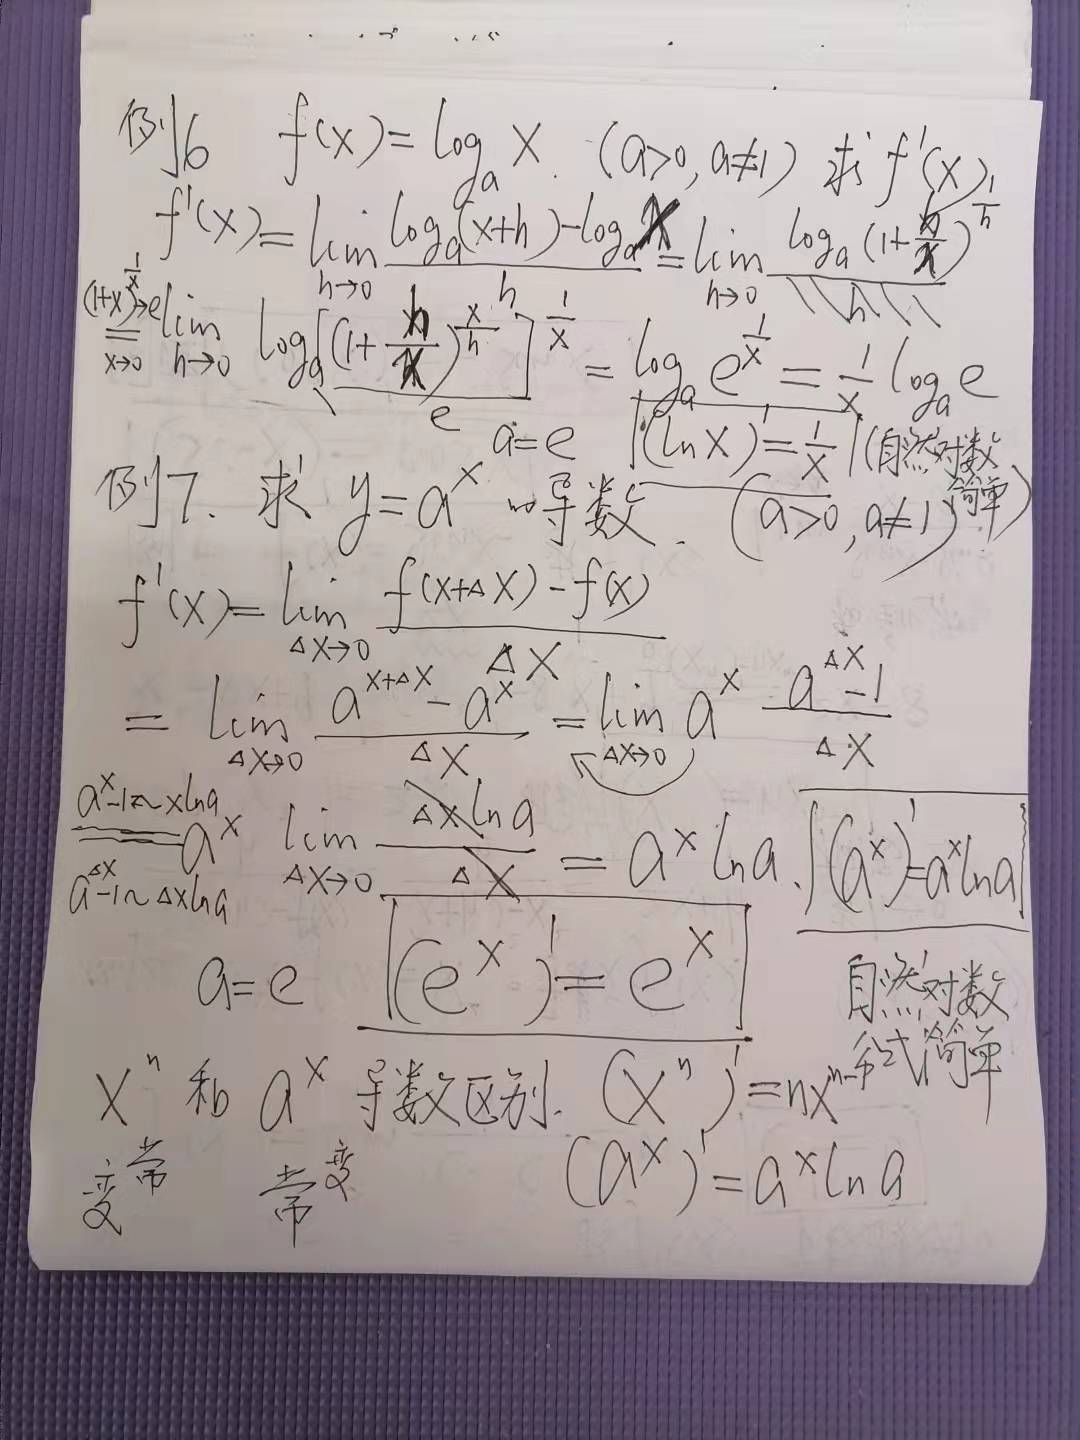 例6 f(x)=logₐx. (a>0, a≠1) 求f'(x)
f'(x)=lim_{h→0} (logₐ(x+h)-logₐx)/h = lim_{h→0} logₐ(1+h/x)^{1/h}
(1+x)^{1/x}→e x→0 = lim_{h→0} logₐ[(1+h/x)^{x/h}]^{1/x} = logₐe^{1/x} = 1/x logₐe
e a=e (lnx)'=1/x (自然对数简单)
例7. 求 y=a^x 的导数. (a>0, a≠1)
f'(x)=lim_{Δx→0} (f(x+Δx)-f(x))/Δx
= lim_{Δx→0} (a^{x+Δx}-a^x)/Δx = lim_{Δx→0} a^x (a^{Δx}-1)/Δx
a^x-1~xlna a^{Δx}-1~Δxlna = a^x lim_{Δx→0} Δxlna/Δx = a^x lna. (a^x)'=a^x lna
a=e (e^x)'=e^x 自然对数
公式简单
x^n 和 a^x 导数区别. (x^n)'=nx^{n-1}
变常 常变 (a^x)'=a^x lna